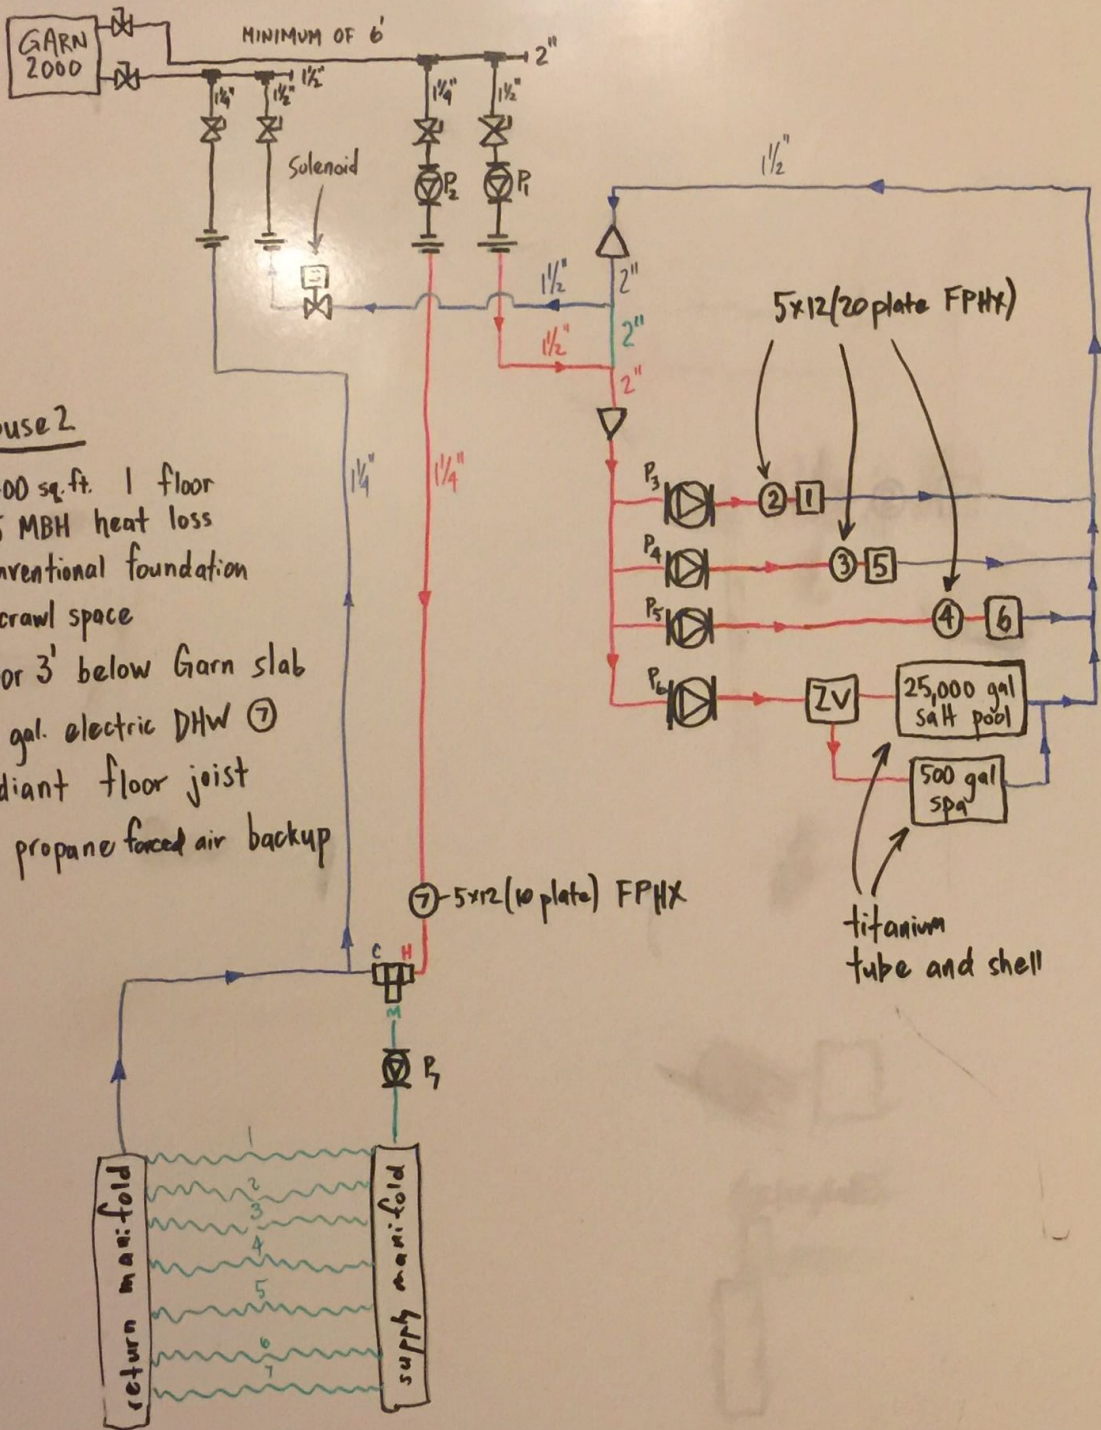 GARN
2000
MINIMUM OF 6'
2"
1½"
1¼"
1½"
1¼"
1½"
Solenoid
P2
P1
1½"
1½"
2"
2"
1½"
2"
5x12(20 plate FPHX)
use 2
00 sq.ft. 1 floor
MBH heat loss
nventional foundation
crawl space
or 3' below Garn slab
gal. electric DHW ⑦
diant floor joist
propane forced air backup
1¼"
1¼"
P3
② 1
P4
③ 5
P5
④ 6
P6
ZV
25,000 gal
salt pool
500 gal
spa
titanium
tube and shell
⑦-5x12(10 plate) FPHX
C H
M
P7
return manifold
supply manifold
1
2
3
4
5
6
7